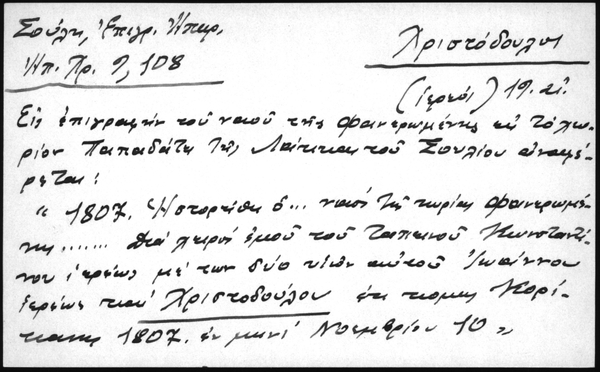 Σούλη, Ἐπιγρ. Ἠπειρ.
Ἠπ. Χρ. 9, 108
Χριστόδουλος
(ἱερεύς) 19. αἰ.
Εἰς ἐπιγραφὴν τοῦ ναοῦ τῆς Φανερωμένης εἰς τὸ χω-
ρίον Παπαδάτη τῆς Λάκκας τοῦ Σουλίου ἀναφέ-
ρεται:
" 1807. Ἱστορίθη ὁ... ναὸς τῆς κυρίας Φανερωμέ-
νης....... διὰ χειρὸς ἐμοῦ τοῦ ταπεινοῦ Κωνσταντί-
νου ἱερέως μὲ των δύο υἱῶν αὐτοῦ Ἰωάννου
ἱερέως καὶ Χριστοδούλου ἐκ κόμης Κορί-
1807. ἐν μηνὶ Νοεμβρίου 10 "